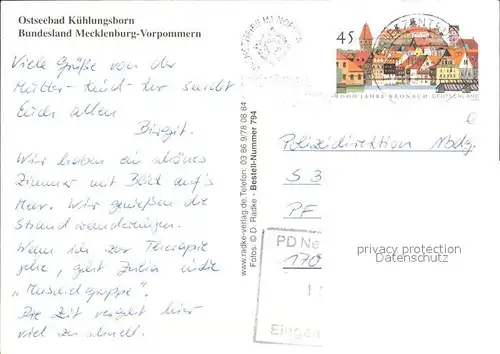 Ostseebad Kühlungsborn
Bundesland Mecklenburg-Vorpommern
Viele Grüße von der
Mutter-Kind-Kur sendet
Euch allen
Birgit.
Wir haben ein schönes
Zimmer mit Blick auf's
Meer. Wir genießen die
Strandwanderungen.
Wenn ich zur Therapie
gehe, geht in die
"
Die Zeit vergeht hier
viel zu schnell.
www.radke-verlag.de, Telefon: 03 86 9/78 08 84
Fotos: © D. Radke - Bestell-Nummer 794
45
1000 JAHRE KRONACH DEUTSCHLAND
Polizeidirektion
S 3
PF
PD Ne
170
Eingan
privacy protection
Datenschutz